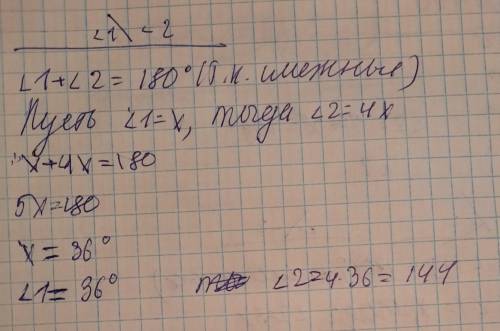 ∠1 ∠2
∠1+∠2 = 180° (т.к. смежные)
Пусть ∠1=x, тогда ∠2=4x
x+4x=180
5x=180
x = 36°
∠1= 36° ∠2=4·36=144